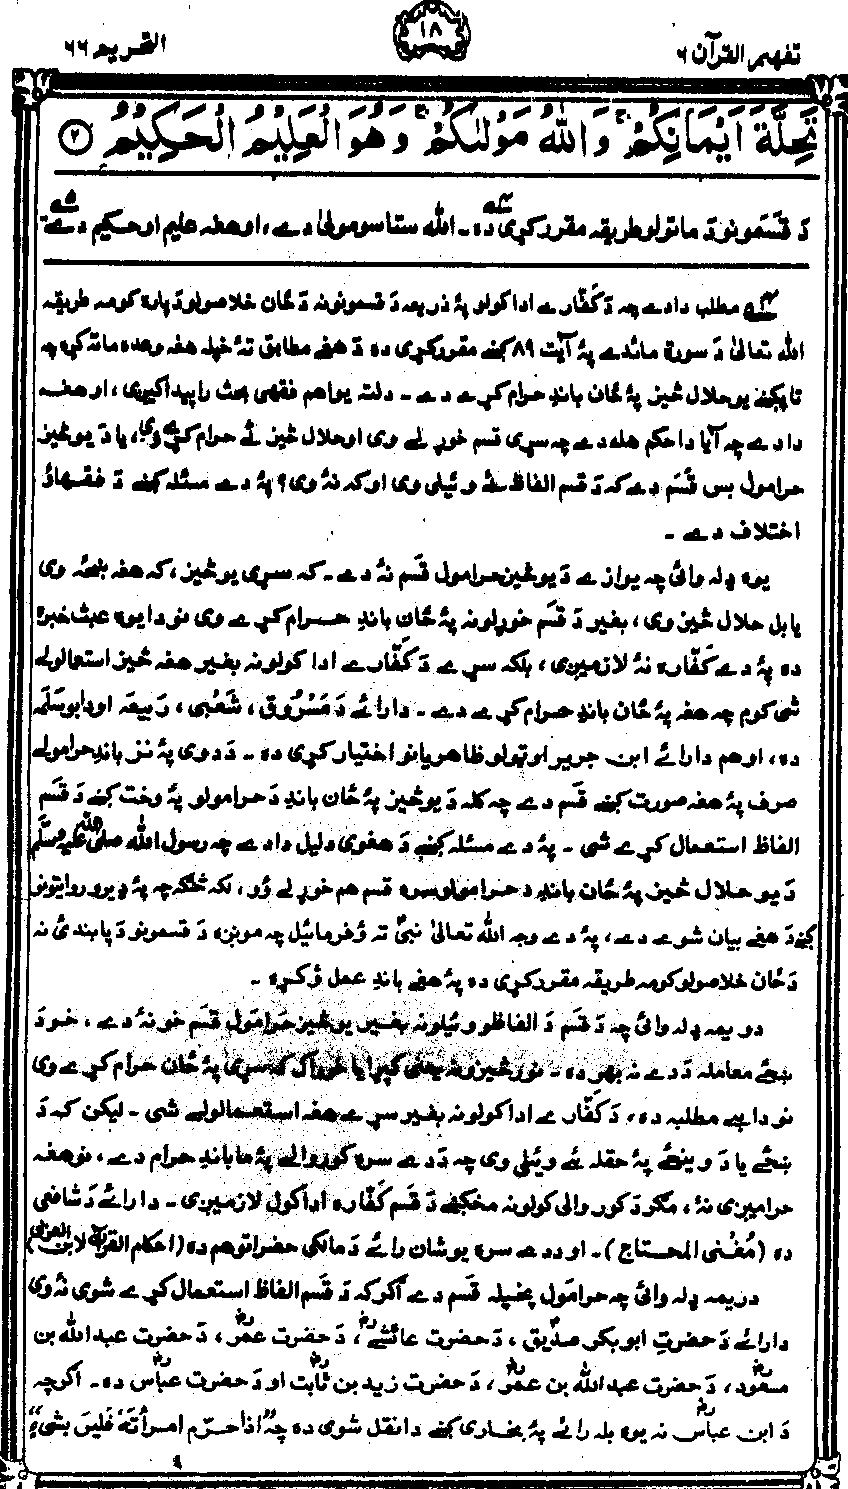 تفهیم القرآن ۶
۱۸
التحریم ۶۶
تَحِلَّةَ اَيْمَانِكُمْ ۚ وَاللّٰهُ مَوْلٰىكُمْ ۚ وَهُوَ الْعَلِيْمُ الْحَكِيْمُ ۲
دَ قَسَمونو دَ ماتولو طریقہ مقرر کړی دہ۔ اللہ ستاسو مولیٰ دے، او ھغہ علیم او حکیم دے
مطلب دادے چہ دَ کَفّارے ادا کولو پۂ ذریعہ دَ قسمونونہ دَ ځان خلاصولو دَ پارہ کومہ طریقہ
اللہ تعالیٰ دَ سورۃ مائدے پۂ آیت ۸۹ کښے مقرر کړی دہ دَ ھغے مطابق تۂ خپلہ ھغہ وعدہ ماتہ کړہ چہ
تا پکښے یو حلال څیز پۂ ځان باندِ حرام کړے دے۔ دلتہ یو اھم فقھی بحث راپیدا کیږی، او ھغہ
دا دے چہ آیا دا حکم ھلہ دے چہ سړی قسم خوړلے وی او حلال څیز ئے حرام کړے وی، یا دَ یو څیز
حرامول بس قَسَم دے کہ دَ قسم الفاظ ئے وئیلی وی او کہ نۂ وی؟ پۂ دے مسئلہ کښے دَ فقھاؤ
اختلاف دے۔
یوہ ډلہ وائی چہ یوازے دَ یو څیز حرامول قَسَم نۂ دے۔ کہ سړی یو څیز، کہ ھغہ ښځہ وی
یا بل حلال څیز وی، بغیر دَ قَسَم خوړلونہ پۂ ځان باندِ حرام کړے وی نو دا یوہ عبث خبرہ
دہ پۂ دے کَفّارہ نۂ لازمیږی، بلکہ سړے دَ کَفّارے ادا کولونہ بغیر ھغہ څیز استعمالولے
شی کوم چہ ھغہ پۂ ځان باندِ حرام کړے دے۔ دا رائے دَ مَسْرُوق، شَعْبی، رَبیعَہ او دابوسَلَمَہ
دہ، او ھم دا رائے ابن جریر او ټولو ظاھریانو اختیار کړی دہ۔ دَ دوی پۂ نز باندِ حرامولے
صرف پۂ ھغہ صورت کښے قَسَم دے چہ کلہ دَ یو څیز پۂ ځان باندِ دَ حرامولو پۂ وخت کښے دَ قَسَم
الفاظ استعمال کړے شی۔ پۂ دے مسئلہ کښے دَ ھغوی دلیل دادے چہ رسول اللہ صلی اللہ علیہ وسلم
دَ یو حلال څیز پۂ ځان باندِ دَ حرامولو سرہ قسم ھم خوړلے وُو، لکہ څنګہ چہ پۂ ډیرو روایتونو
کښے دَ ھغے بیان شوے دے، پۂ دے وجہ اللہ تعالیٰ نبیؐ تہ وُفرمائیل چہ مونږہ دَ قسمونو دَ پابندئ نہ
دَ ځان خلاصولو کومہ طریقہ مقرر کړی دہ پۂ ھغے باندِ عمل وُکړہ۔
دویمہ ډلہ وائی چہ دَ قَسَم دَ الفاظو وئیلونہ بغیر یو څیز حَرامَول قَسَم خو نۂ دے، خو دَ
ښځے معاملہ دَ دے نہ بھر دہ۔ نور څیزونہ یعنی کپړا یا خوراک کہ سړی پۂ ځان حرام کړے وی
نو دا بے مطلبہ دہ، دَ کَفّارے ادا کولونہ بغیر سړے ھغہ استعمالولے شی۔ لیکن کہ دَ
ښځے یا دَ وینځے پۂ حقلہ ئے وئیلی وی چہ دَ دے سرہ کوروالے پۂ ما باندِ حرام دے، نو ھغہ
حرامیږی نۂ، مګر دَ کوروالی کولونہ مخکښے دَ قَسَم کَفّارہ ادا کول لازمیږی۔ دا رائے دَ شافعی
دہ (مُغْنی المحتاج)۔ او دَ دے سرہ یو شان رائے دَ مالکی حضراتو ھم دہ (احکام القرآن لابن العربی)
دریمہ ډلہ وائی چہ حرامَول پخپلہ قَسَم دے اګر کہ دَ قَسَم الفاظ استعمال کړے شوی نۂ وی
دا رائے دَ حضرتِ ابوبکر صدیق، دَ حضرت عائشےؓ، دَ حضرت عمرؓ، دَ حضرت عبداللہ بن
مسعودؓ، دَ حضرت عبداللہ بن عمرؓ، دَ حضرت زید بن ثابتؓ او دَ حضرت عباسؓ دہ۔ اګرچہ
دَ ابن عباسؓ نہ یوہ بلہ رائے پۂ بخاری کښے دا نقل شوی دہ چہ اذا حرّم امرأتَهٗ فلیسَ بشیءٍ